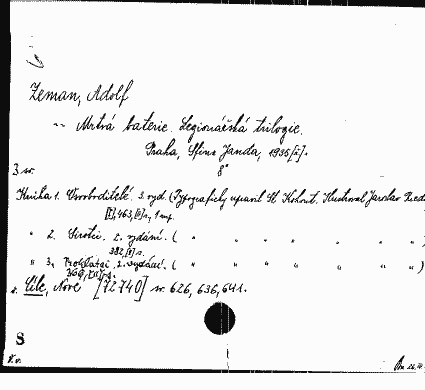 Zeman, Adolf
~ Mrtvá baterie. Legionářská trilogie.
Praha, Sfinx Janda, 1935[?].
3 sv. 8°
Kniha 1. Osvoboditelé. 3. vyd. (Typografický upravil St. Kohout. Ilustroval Jaroslav
[I], 463, [I] s., 1 mp.
" 2. Sirotci. 2. vydání. ( " " " " " " " )
382, [I] s.
" 3. Prokletí. 2. vydání. ( " " " " " " " )
v. Cíle, Nové [72740] sv. 626, 636, 641.
S